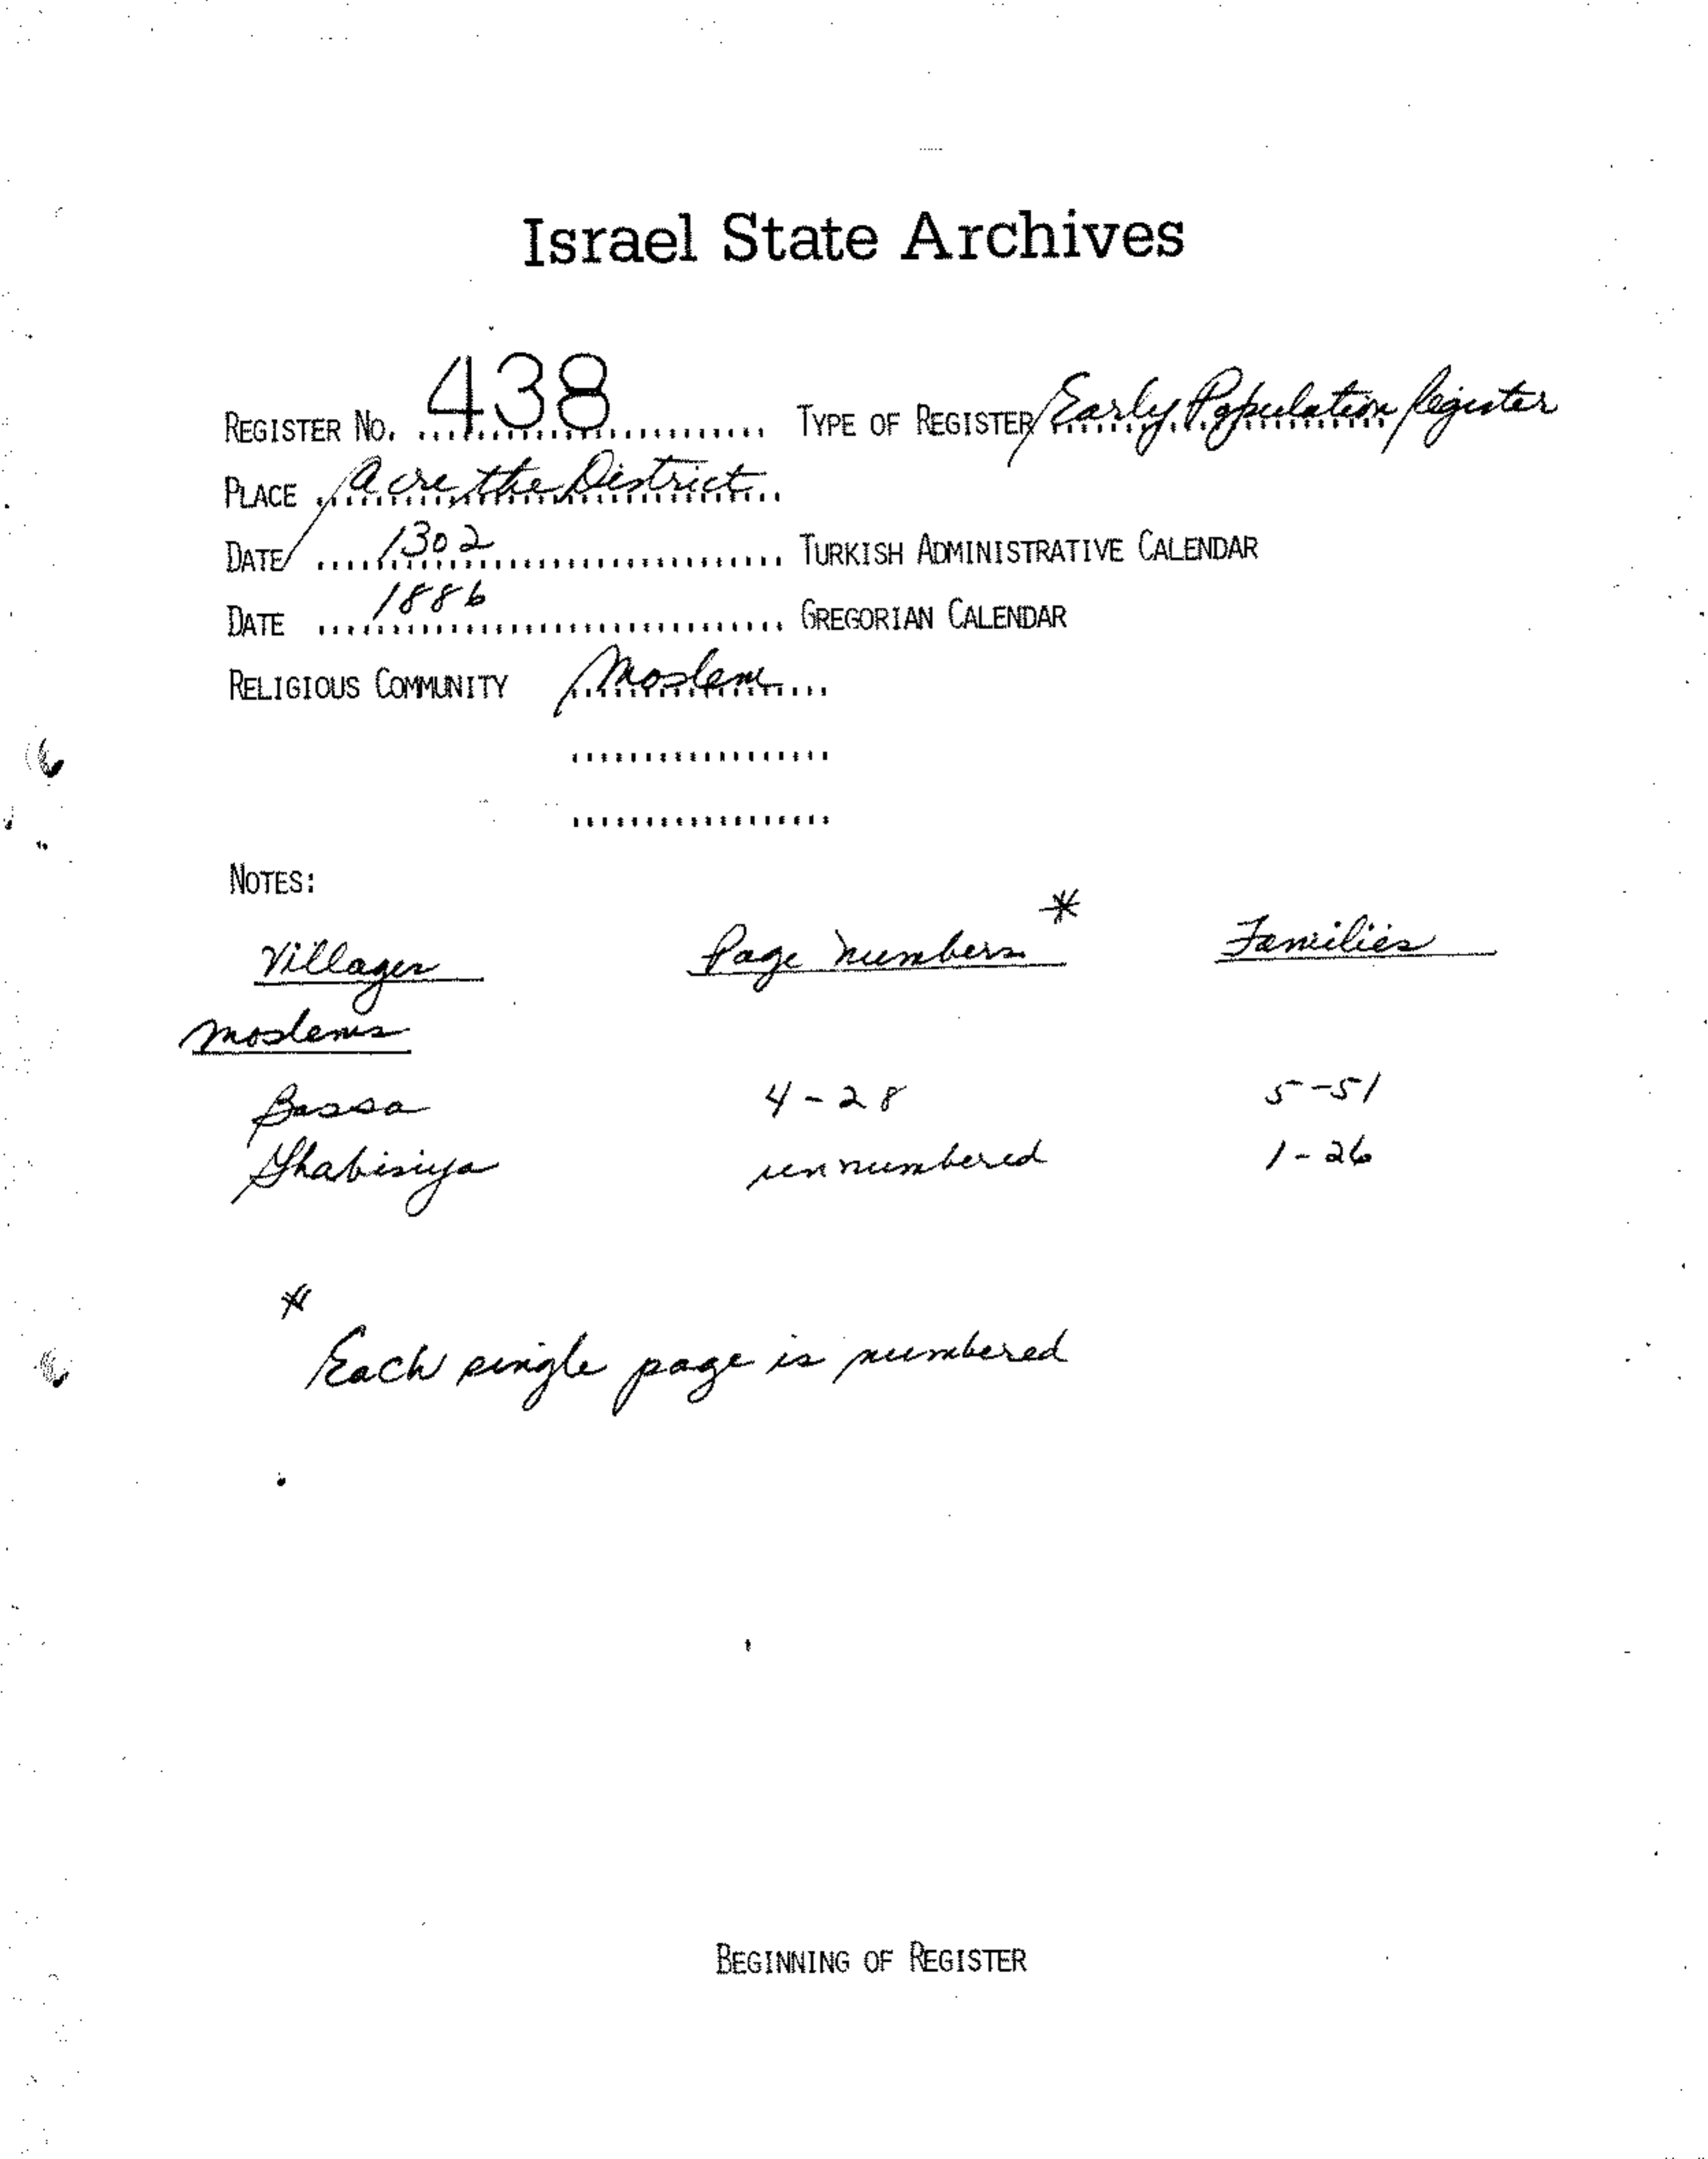 Israel State Archives
REGISTER NO. 438 TYPE OF REGISTER Early Population Register
PLACE Acre, the District
DATE 1302 TURKISH ADMINISTRATIVE CALENDAR
DATE 1886 GREGORIAN CALENDAR
RELIGIOUS COMMUNITY Moslem
NOTES:
Villages Page Numbers * Families
Moslems
Bassa 4-28 5-51
Ghabisiya unnumbered 1-26
*
Each single page is numbered
BEGINNING OF REGISTER